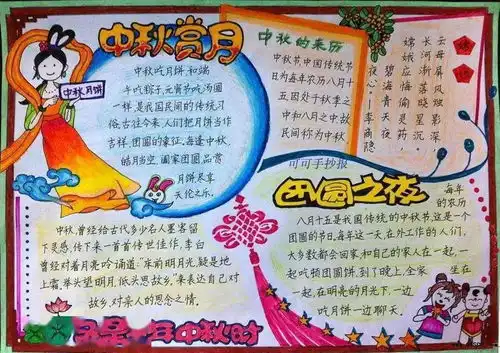 中秋赏月
中秋月饼
中秋吃月饼和端
午吃粽子,元宵节吃汤圆
一样是我国民间的传统习
俗,古往今来,人们把月饼当作
吉祥,团圆的象征,每逢中秋,
皓月当空,阖家团圆品赏
月饼尽享
天伦之乐。
中秋的来历
中秋节中国传统节
日为每年农历八月十
五,因处于秋季之
中和八月之中故
民间称为中秋
云母屏风烛影深
长河渐落晓星沉
嫦娥应悔偷灵药
碧海青天夜夜心
—李商隐
可可手抄报
团圆之夜
每年
的农历
八月十五是我国传统的中秋节,这是一个
团圆的节日,每年这一天,在外工作的人们,
大多数都会回家和自己的家人在一起,一
起吃顿团圆饼,到了晚上,全家 坐在
一起,在明亮的月光下,一边
吃月饼一边聊天.
中秋,曾经给古代多少名人墨客留
下灵感,传下来一首首传世佳作,李白
曾经对着月亮吟诵道:“床前明月光,疑是地
上霜,举头望明月,低头思故乡,”来表达自己对
故乡,对亲人的思念之情.
又是一年中秋时